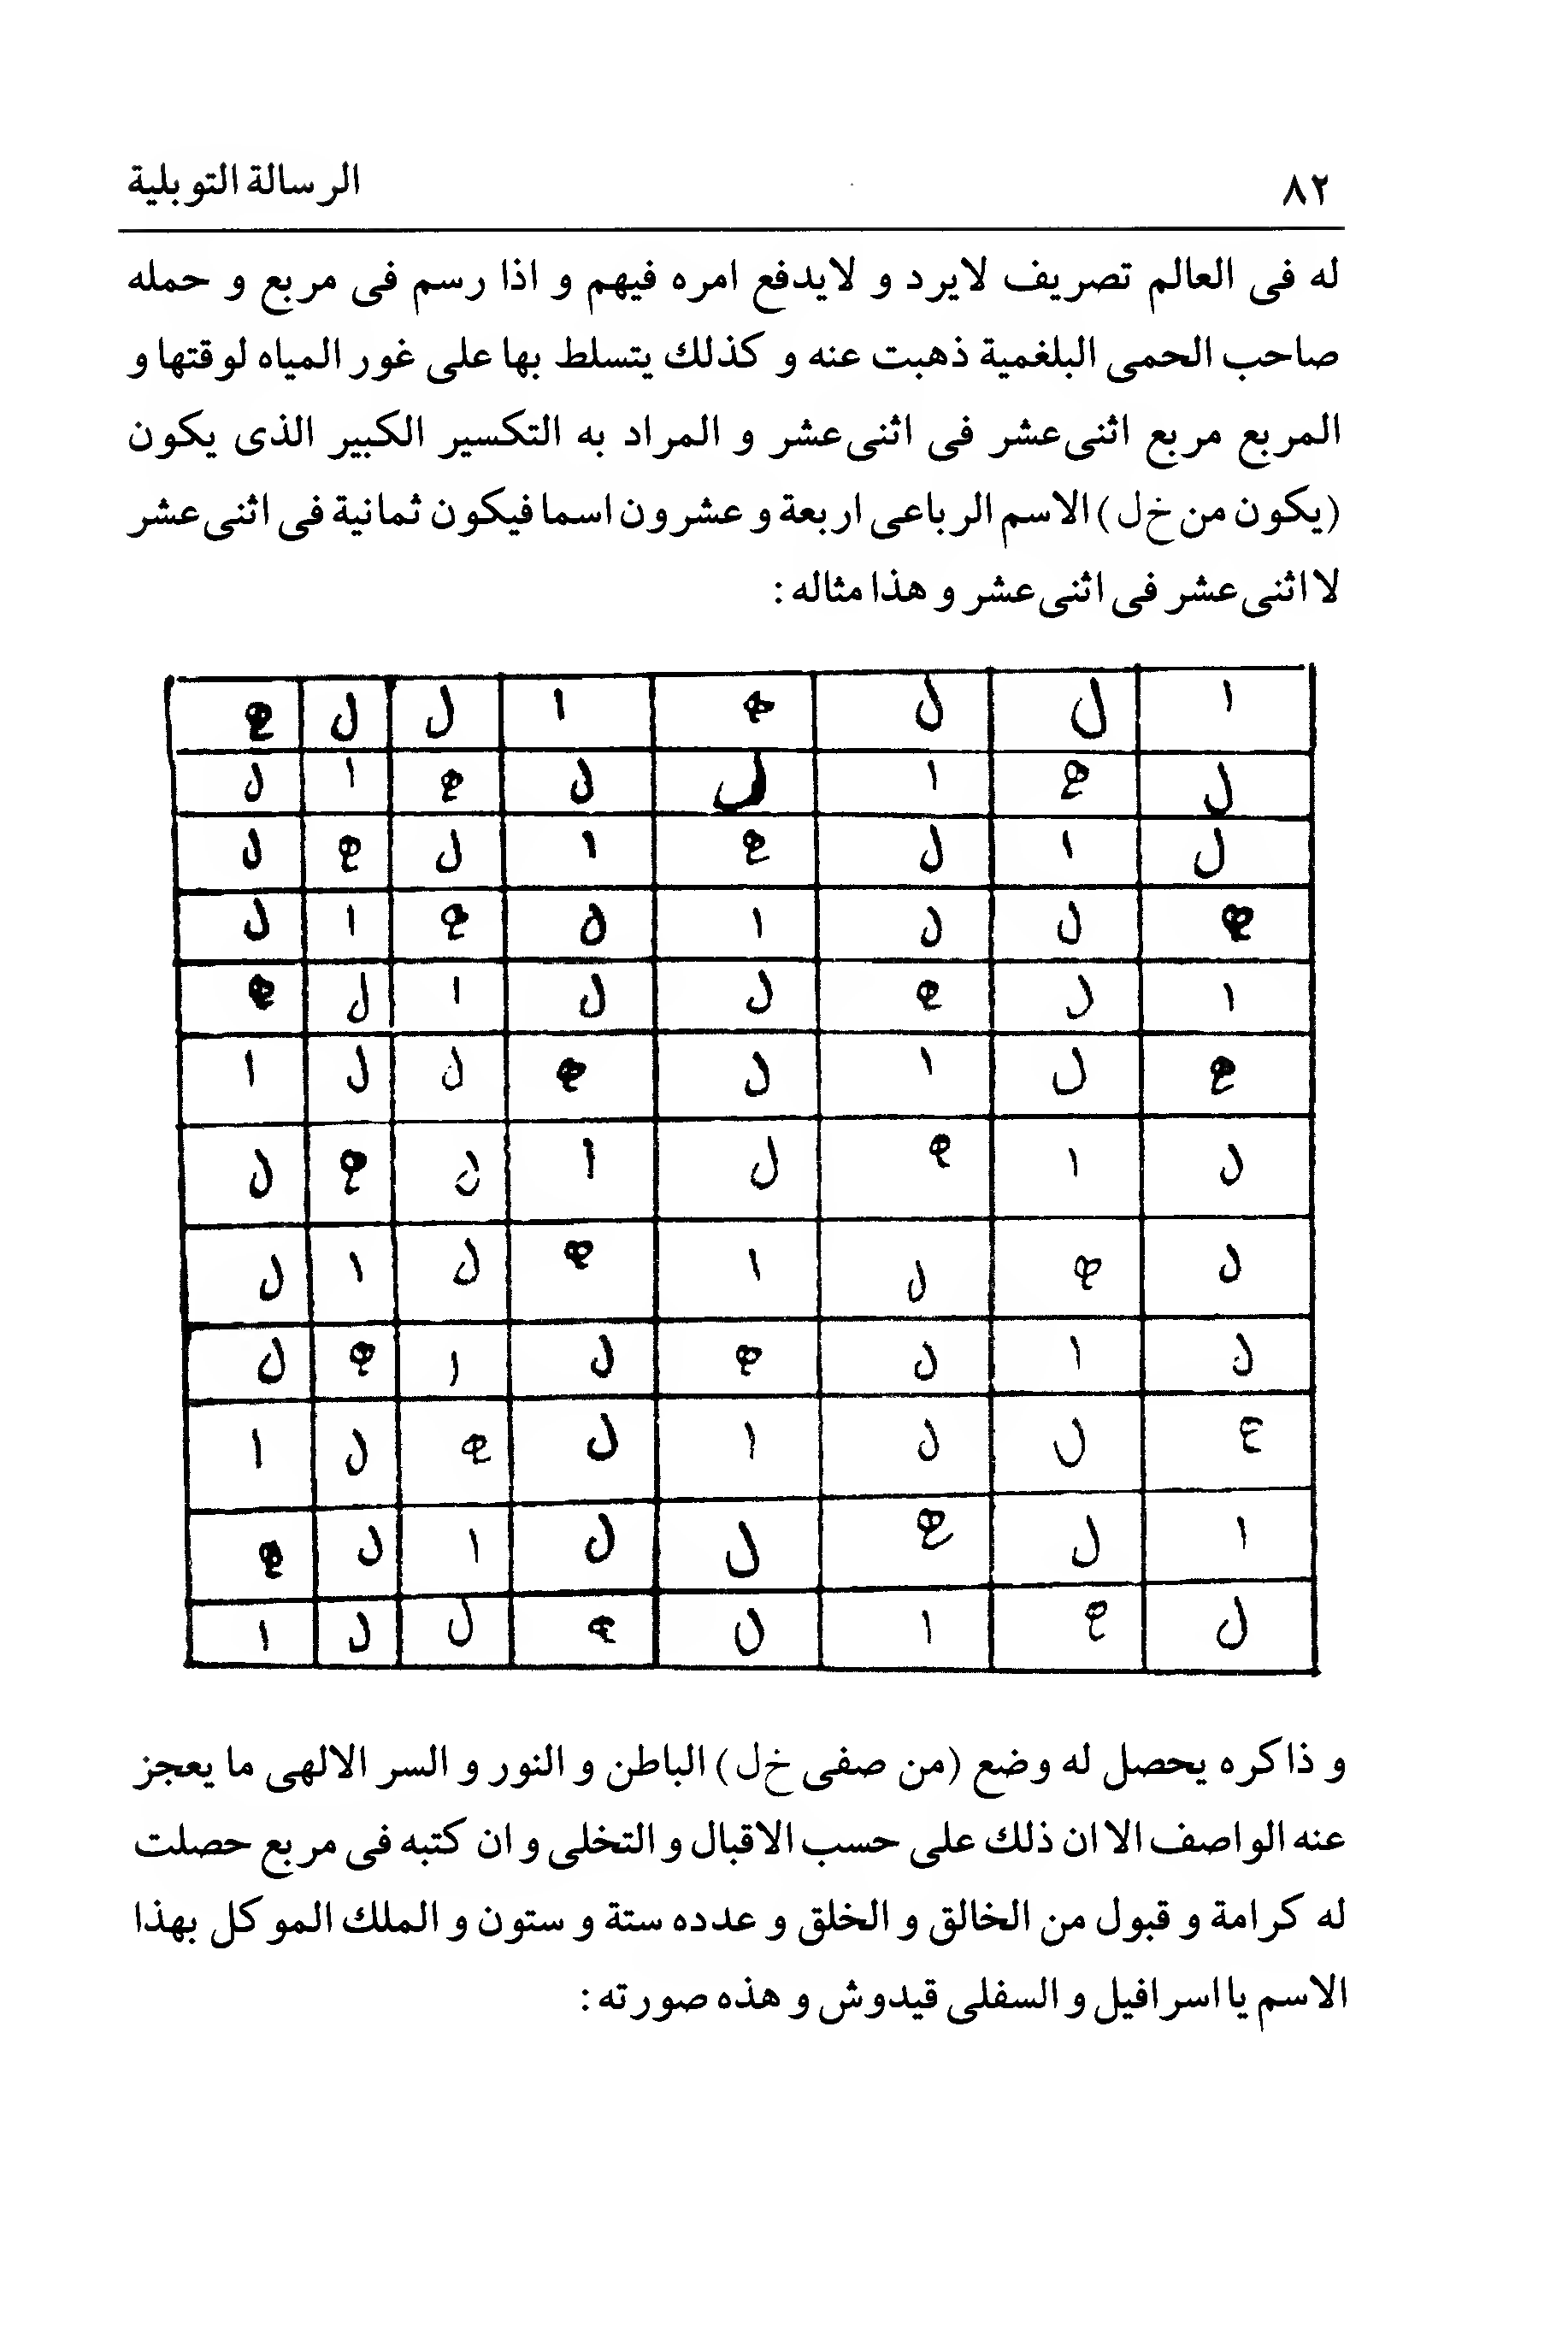 ٨٢ الرسالة التوبلية
له فى العالم تصريف لايرد و لايدفع امره فيهم و اذا رسم فى مربع و حمله
صاحب الحمى البلغمية ذهبت عنه و كذلك يتسلط بها على غور المياه لوقتها و
المربع مربع اثنى‌عشر فى اثنى‌عشر و المراد به التكسير الكبير الذى يكون
(يكون من خ‌ل) الاسم الرباعى اربعة و عشرون اسما فيكون ثمانية فى اثنى‌عشر
لا اثنى‌عشر فى اثنى‌عشر و هذا مثاله :
ا ل ل ه ا ل ل ه
ل ه ا ل ل ه ا ل
ل ا ل ه ا ل ه ل
ه ل ل ا ل ه ا ل
ا ل ه ل ل ا ل ه
ه ل ا ل ه ل ل ا
ل ا ه ل ا ل ه ل
ل ه ل ا ه ل ا ل
ل ا ل ه ل ا ه ل
ه ل ل ا ل ه ل ا
ا ل ه ل ل ا ل ه
ل ه ا ل ه ل ل ا
و ذاكره يحصل له وضع (من صفى خ‌ل) الباطن و النور و السر الالهى ما يعجز
عنه الواصف الا ان ذلك على حسب الاقبال و التخلى و ان كتبه فى مربع حصلت
له كرامة و قبول من الخالق و الخلق و عدده ستة و ستون و الملك الموكل بهذا
الاسم يا اسرافيل و السفلى قيدوش و هذه صورته :